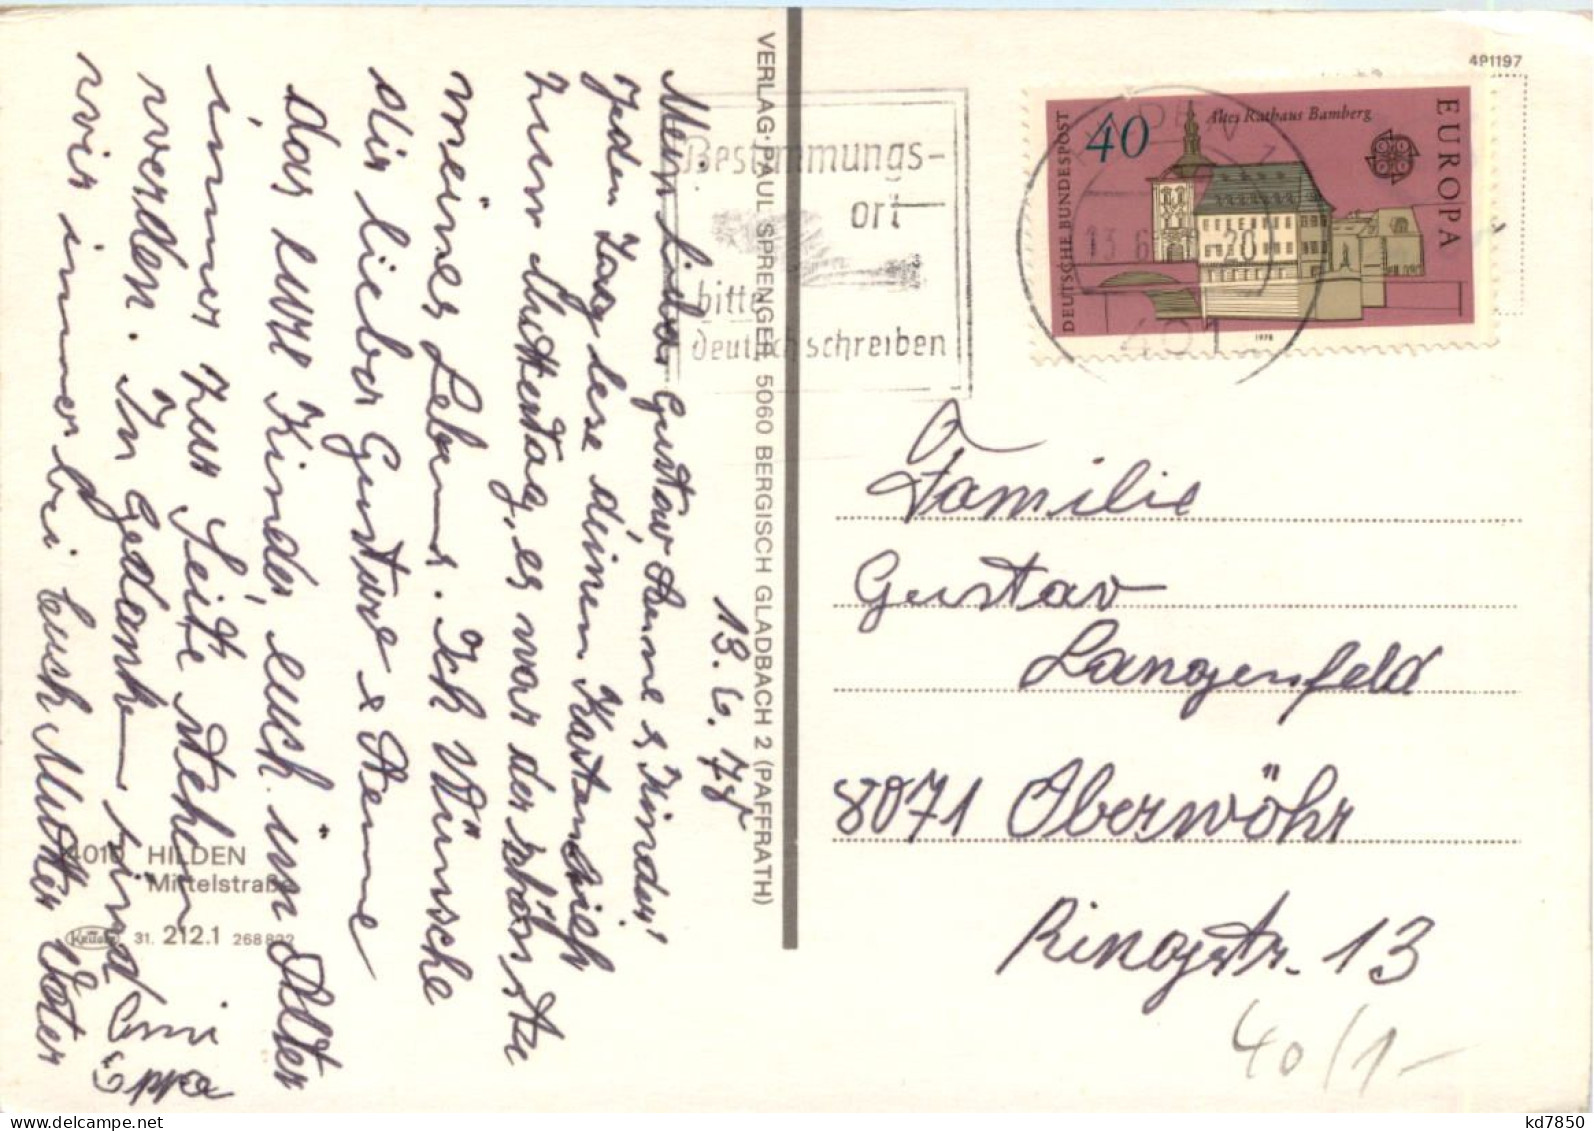 13. 6. 78
Mein lieber Gustav Anne & Kinder!
Jeden Tag lese deinen Kartenbrief
zum Muttertag, es war der schönste
meines Lebens. Ich wünsche
dir lieber Gustav & Anne
das eure Kinder, euch im Alter
immer zur Seite stehen
werden. In Gedanken sind
wir immer bei Euch Mutter Vater
Omi
Oppa
VERLAG PAUL SPRENGER 5060 BERGISCH GLADBACH 2 (PAFFRATH)
4010 HILDEN
Mittelstraße
Krüger 31. 212.1 268822
Bestimmungs-
ort
bitte
deutlich schreiben
4P1197
DEUTSCHE BUNDESPOST
40
Altes Rathaus Bamberg
EUROPA
1978
13.6. 20
401
Familie
Gustav
Langenfeld
8071 Oberwöhr
Ringstr. 13
40/1-
kd7850